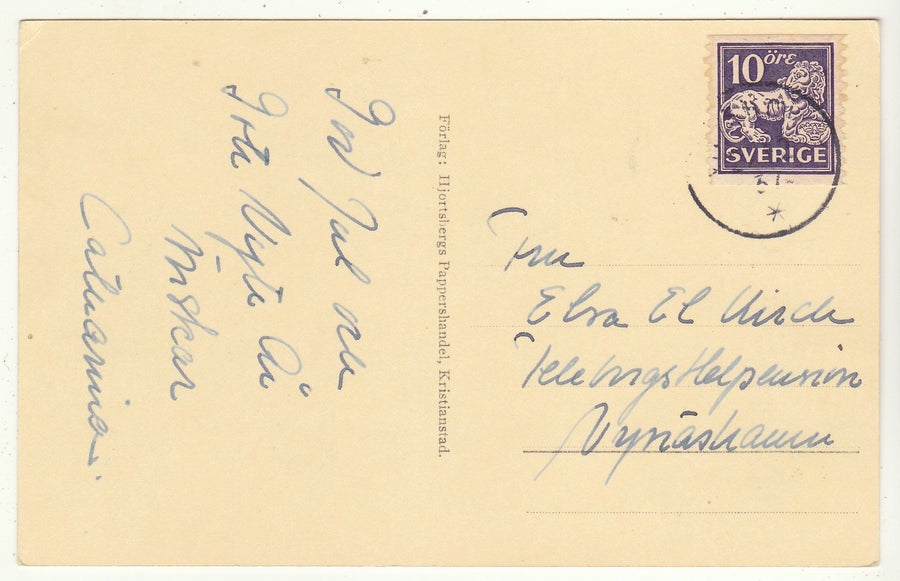 God Jul och
Gott Nytt År
Önskar
Catharina.
Förlag: Hjortsbergs Pappershandel, Kristianstad.
10 öre
SVERIGE
Fru
Elsa
Nynäshamn